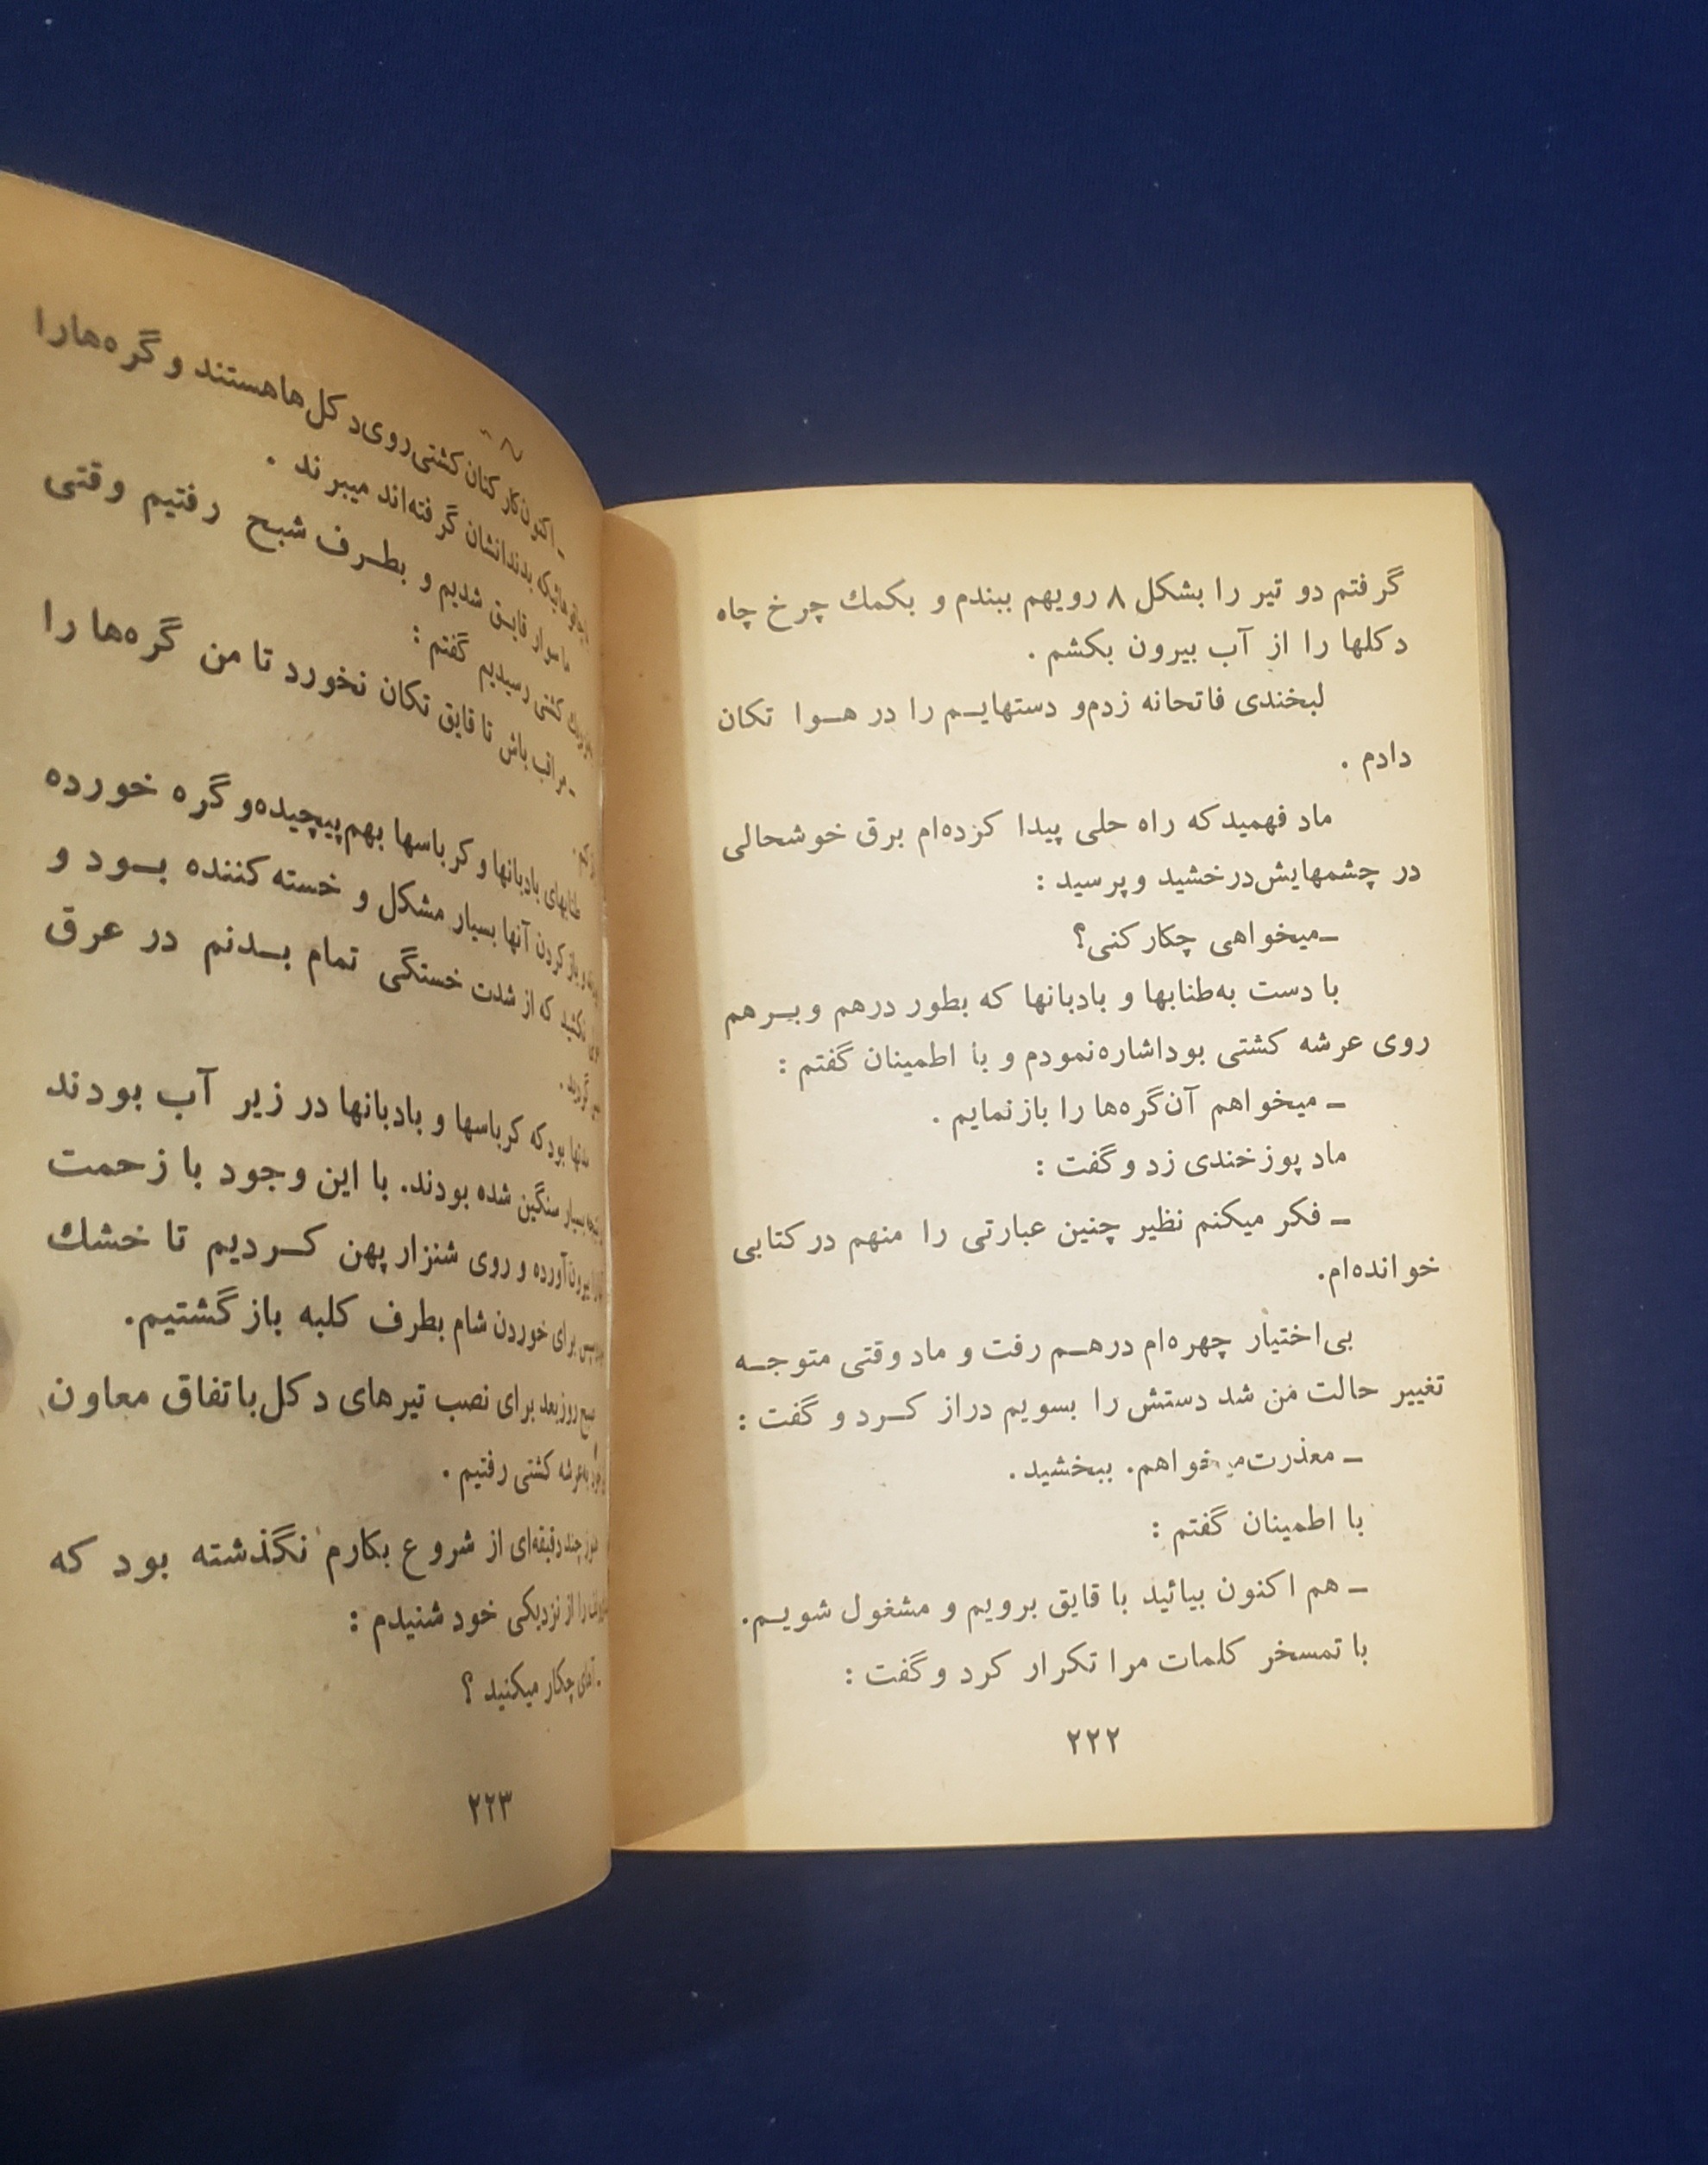 گرفتم دو تیر را بشکل ۸ رویهم ببندم و بکمك چرخ چاه
دکلها را از آب بیرون بکشم .
لبخندی فاتحانه زدم‌و دستهایـم را در هـوا تکان
دادم .
ماد فهمید که راه حلی پیدا کرده‌ام برق خوشحالی
در چشمهایش‌درخشید و پرسید :
ـ میخواهی چکار کنی؟
با دست به‌طنابها و بادبانها که بطور درهم و بـرهم
روی عرشه کشتی بود‌اشاره‌نمودم و با اطمینان گفتم :
ـ میخواهم آن‌گره‌ها را بازنمایم .
ماد پوزخندی زد و گفت :
ـ فکر میکنم نظیر چنین عبارتی را منهم در کتابی
خوانده‌ام.
بی‌اختیار چهره‌ام درهـم رفت و ماد وقتی متوجـه
تغییر حالت من شد دستش را بسویم دراز کـرد و گفت :
ـ معذرت‌میخواهم. ببخشید .
با اطمینان گفتم :
ـ هم اکنون بیائید با قایق برویم و مشغول شویـم.
با تمسخر کلمات مرا تکرار کرد و گفت :
۲۲۲
ـ اکنون کارکنان کشتی روی‌دکل‌ها‌هستند و گره‌هارا
بدندانشان گرفته‌اند میبرند .
ما سوار قایـق شدیم و بطـرف شبح رفتیم وقتی
کشتی رسیدیم گفتم :
ـ مراقب باش تا قایق تکان نخورد تا من گره‌ها را
طنابهای بادبانها و کرباسها بهم‌پیچیده‌و گره خورده
باز کردن آنها بسیار مشکل و خسته کننده بـود و
نکشید که از شدت خستگی تمام بـدنم در عرق
بود که کرباسها و بادبانها در زیر آب بودند
بسیار سنگین شده بودند. با این وجود با زحمت
بیرون‌آورده و روی شنزار پهن کـردیم تا خشك
برای خوردن شام بطرف کلبه باز گشتیم.
روز بعد برای نصب تیرهای دکل‌با‌تفاق معاون
به‌عرشه کشتی رفتیم .
هنوز چند دقیقه‌ای از شروع بکارم نگذشته بود که
را از نزدیکی خود شنیدم :
ـ آهای چکار میکنید ؟
۲۲۳